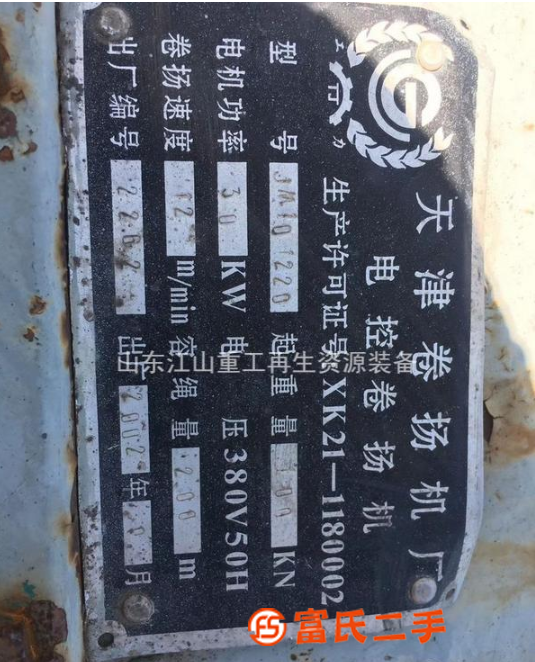 工 力
天津卷扬机厂
电控卷扬机
生产许可证号XK21-1180002
型号 JM10 1220 起重量 100 KN
电机功率 30 KW 电压380V50H
卷扬速度 m/min 容绳量 200 m
出厂编号 2262 2002年 月
山东江山重工再生资源装备
富氏二手